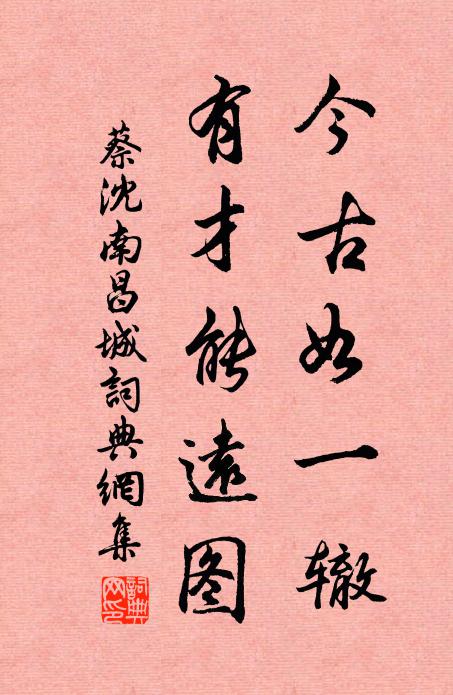 今古如一辙
有才能遠图
蔡沈南昌城詞典網集
詞典网印